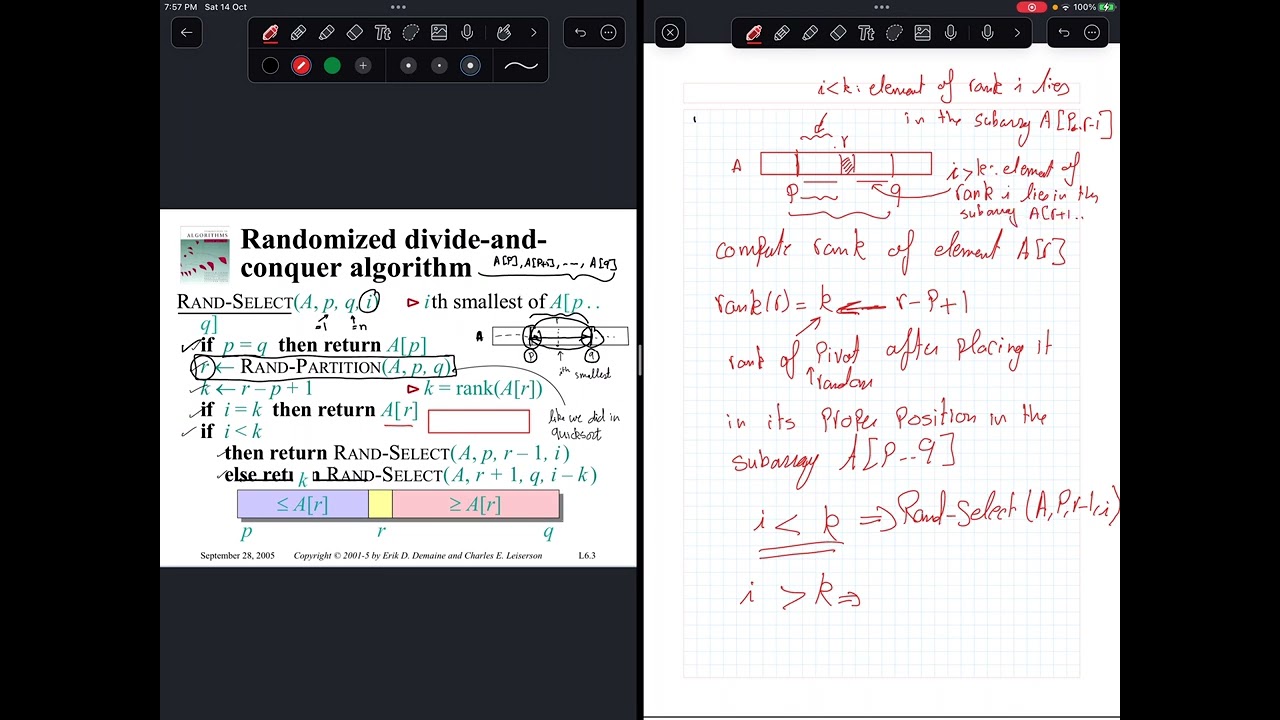 7:57 PM Sat 14 Oct
100%
ALGORITHMS
Randomized divide-and-
conquer algorithm A[P], A[P+1], ---, A[q]
RAND-SELECT(A, p, q, i) ▷ ith smallest of A[p . .
q]
=1 =n
if p = q then return A[p]
A
p q
r ← RAND-PARTITION(A, p, q)
ith smallest
k ← r – p + 1 ▷ k = rank(A[r])
if i = k then return A[r]
like we did in
quicksort
if i < k
then return RAND-SELECT(A, p, r – 1, i)
else return RAND-SELECT(A, r + 1, q, i – k)
k
≤ A[r] ≥ A[r]
p r q
September 28, 2005 Copyright © 2001-5 by Erik D. Demaine and Charles E. Leiserson L6.3
i<k: element of rank i lies
in the subarry A[P..r-1]
r
A
i>k: element of
rank i lies in the
subarray A[r+1..
P q
compute rank of element A[r]
rank(r) = k ← r-P+1
rank of Pivot after placing it
random
in its Proper Position in the
subarray A[P--q]
i < k ⇒ Rand-Select(A,P,r-1,i)
i > k ⇒